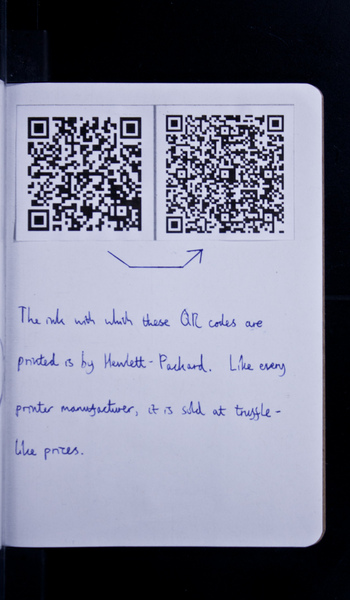 The ink with which these QR codes are
printed is by Hewlett-Packard. Like every
printer manufacturer, it is sold at truffle-
like prices.